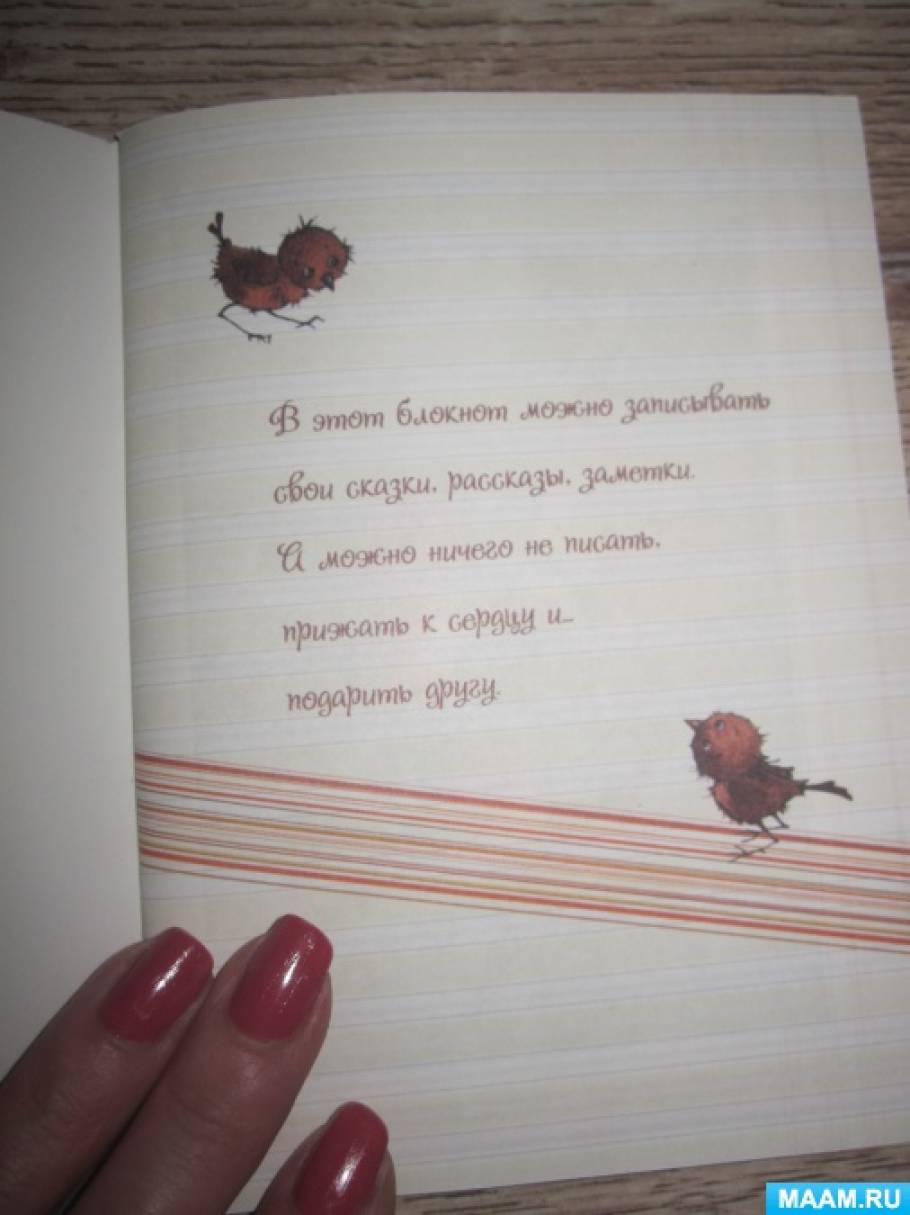 В этот блокнот можно записывать
свои сказки, рассказы, заметки.
А можно ничего не писать,
прижать к сердцу и...
подарить другу.
MAAM.RU